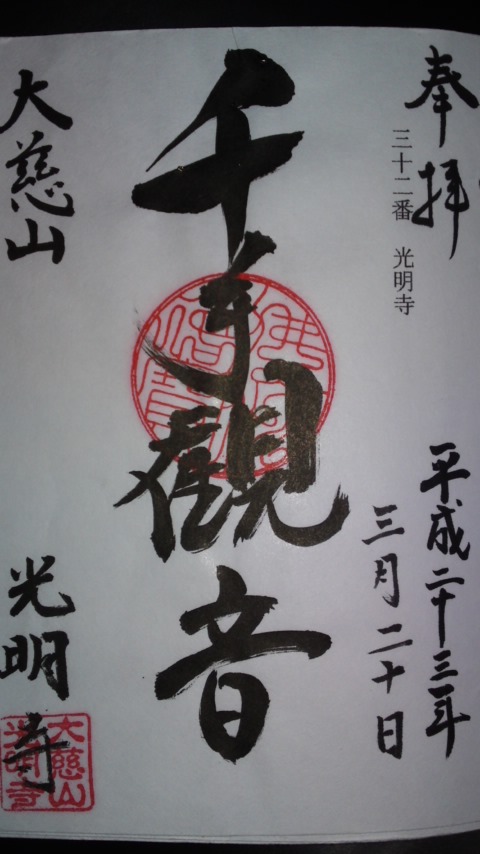 奉拝
三十二番 光明寺
平成二十三年
三月二十日
千手觀音
大慈山
光明寺
大慈山
光明寺